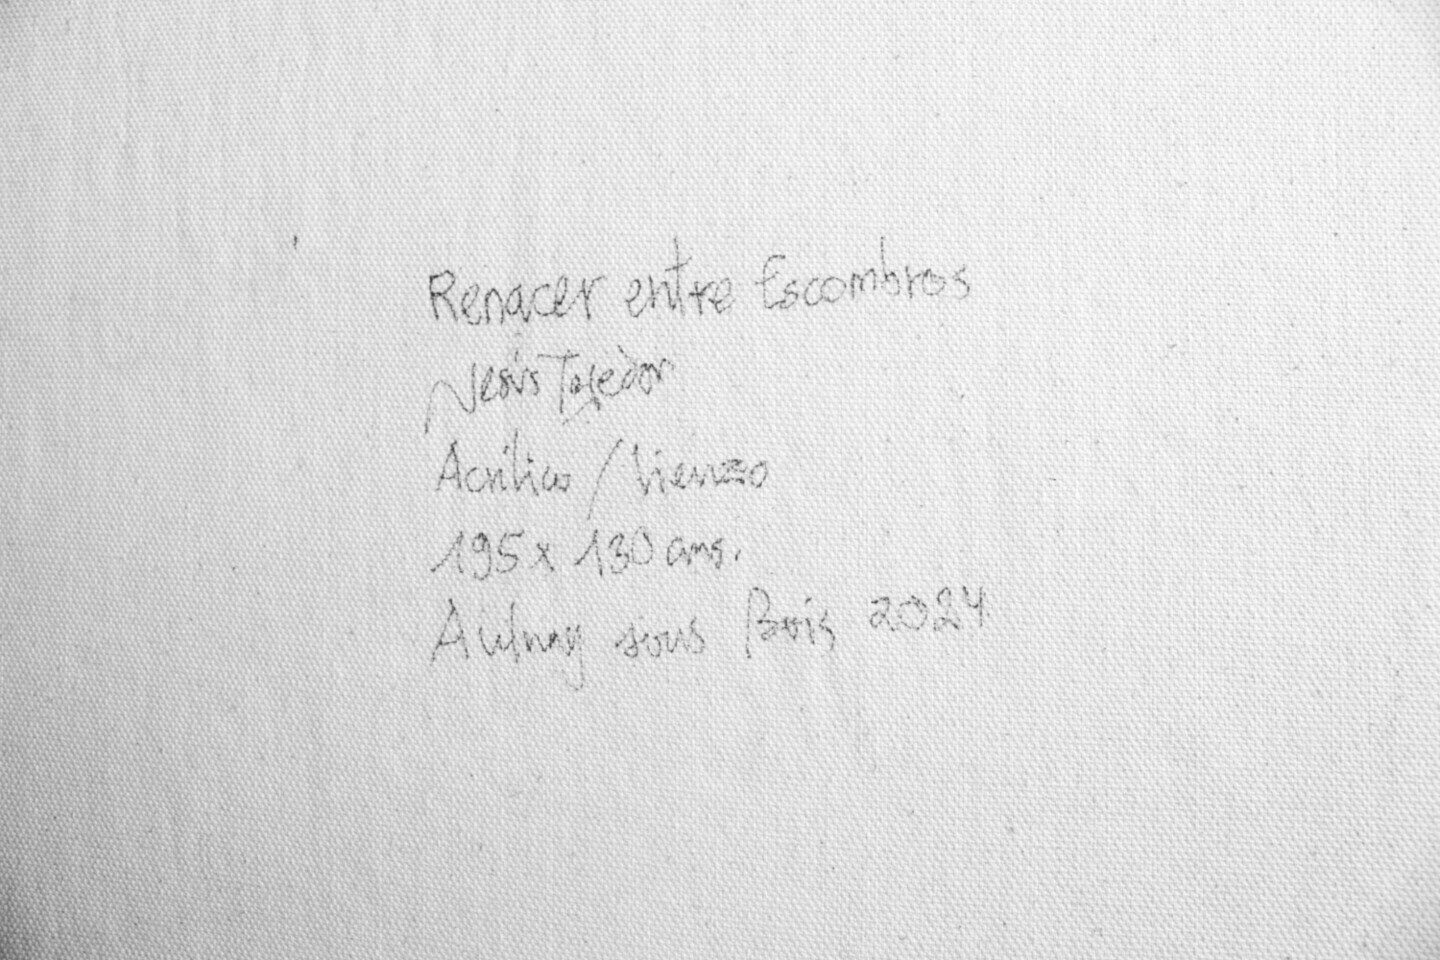 Renacer entre Escombros
Jesús
Acrílico / lienzo
195 x 130 cms.
Aulnay sous Bois 2024